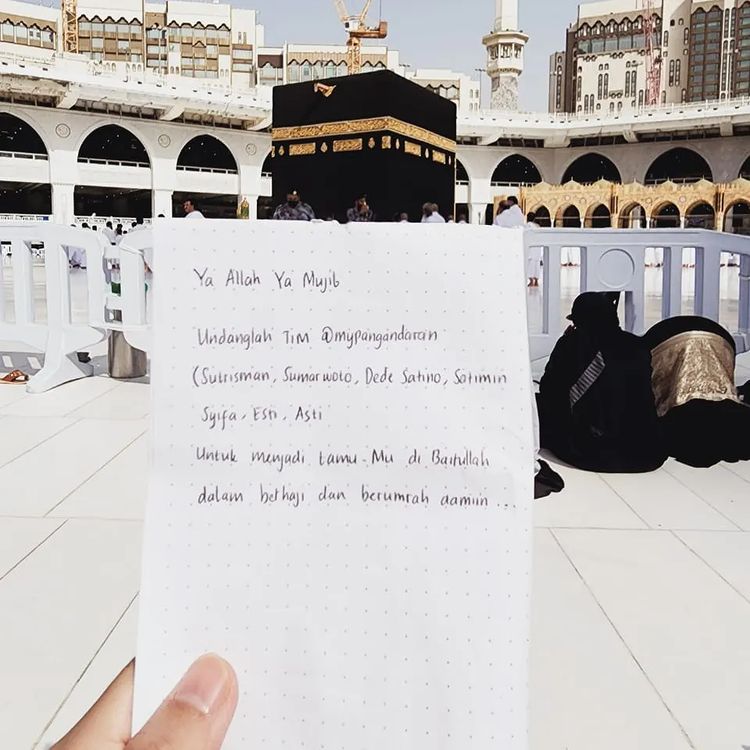 Ya Allah Ya Mujib
Undanglah TIM @mypangandaran
(Sutrisman, Sumarwoto, Dede Satino, Satimin
Syifa, Esti, Asti
Untuk menjadi tamu-Mu di Baitullah
dalam berhaji dan berumrah aamiin ...